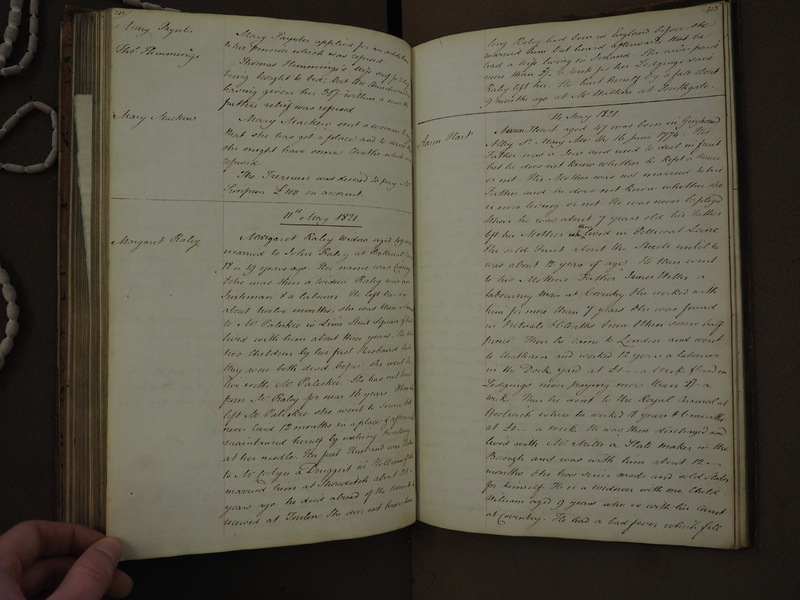 212
Mary Paynter
Mary Paynter applied for an addition
to her pension which was refused
Thos. Hemmings
Thomas Hemmings's wife
being brought to bed; but the
having given her 30/ within a month
further relief was refused
Mary Mackew
Mary Mackew sent a woman
that she has got a place and to desire
she might have some Cloaths which
refused.
The Treasurer was desired to pay Mr
Simpson £100 on account.
11th May 1821.
Margaret Raley
Margaret Raley Widow aged 49 was
married to John Raley at
18 or 19 years ago. Her name was
& she was then a Widow. Raley was an
Irishman & a labourer. He left her in
about twelve months. she was then
to Mr Paleskie in Lime Street Square &
lived with him about three years. She had
two Children by her first Husband but
they were both dead before she went to
live with Mr Paleskie. She has not heard
from Mr Raley for near 16 years. When she
left Mr Paleskie she went to
never lived 12 months in a place & afterwards
maintained herself by nursing &
at her needle. Her first Husband was
to Mr a Druggist in Holborn &
married him at Shoreditch about 25
years ago he died abroad of the wounds he
received at Toulon. She does not know how
213
long Raley had been in England before she
married him but heard afterwards that he
had a wife living in Ireland. She never paid
more than 2/. a week for her Lodgings since
Raley left her. She hurt herself by a fall about
months ago at Mr Walkers at Southgate.
14 May 1821
Aaron Hart
Aaron Hart aged 47 was born in Greyhound
Alley St. Mary Axe the 16 June 1774. His
Father was a Jew and used to deal in fruit
but he does not know whether he kept a house
or not. His Mother was not married to his
Father and he does not know whether she
is now living or not. He was never baptized
When he was about 7 years old his Father
left his Mother they lived in Petticoat Lane
She sold Fruit about the Streets until he
was about 12 years of age. He then went
to his Mothers Father James Miller a
labouring Man at Coventry & he worked with
him for more than 7 years & he was found
in Victuals & Cloaths & now & then some half
pence. Then he came to London and went
to Chatham and worked 12 years a labourer
in the Dock Yard at £1 – a week & lived in
Lodgings never paying more than 2/. a
week. Then he went to the Royal Arsenal at
Woolwich where he worked 8 years & 6 months
at £1.– a week. He was then discharged and
lived with Mr. Mills a Slate maker in the
Borough and was with him about 12
months & he has since made and sold Slates
for himself. He is a widower with one Child
William aged 9 years who is with his Aunt
at Coventry. He had a bad fever which fell